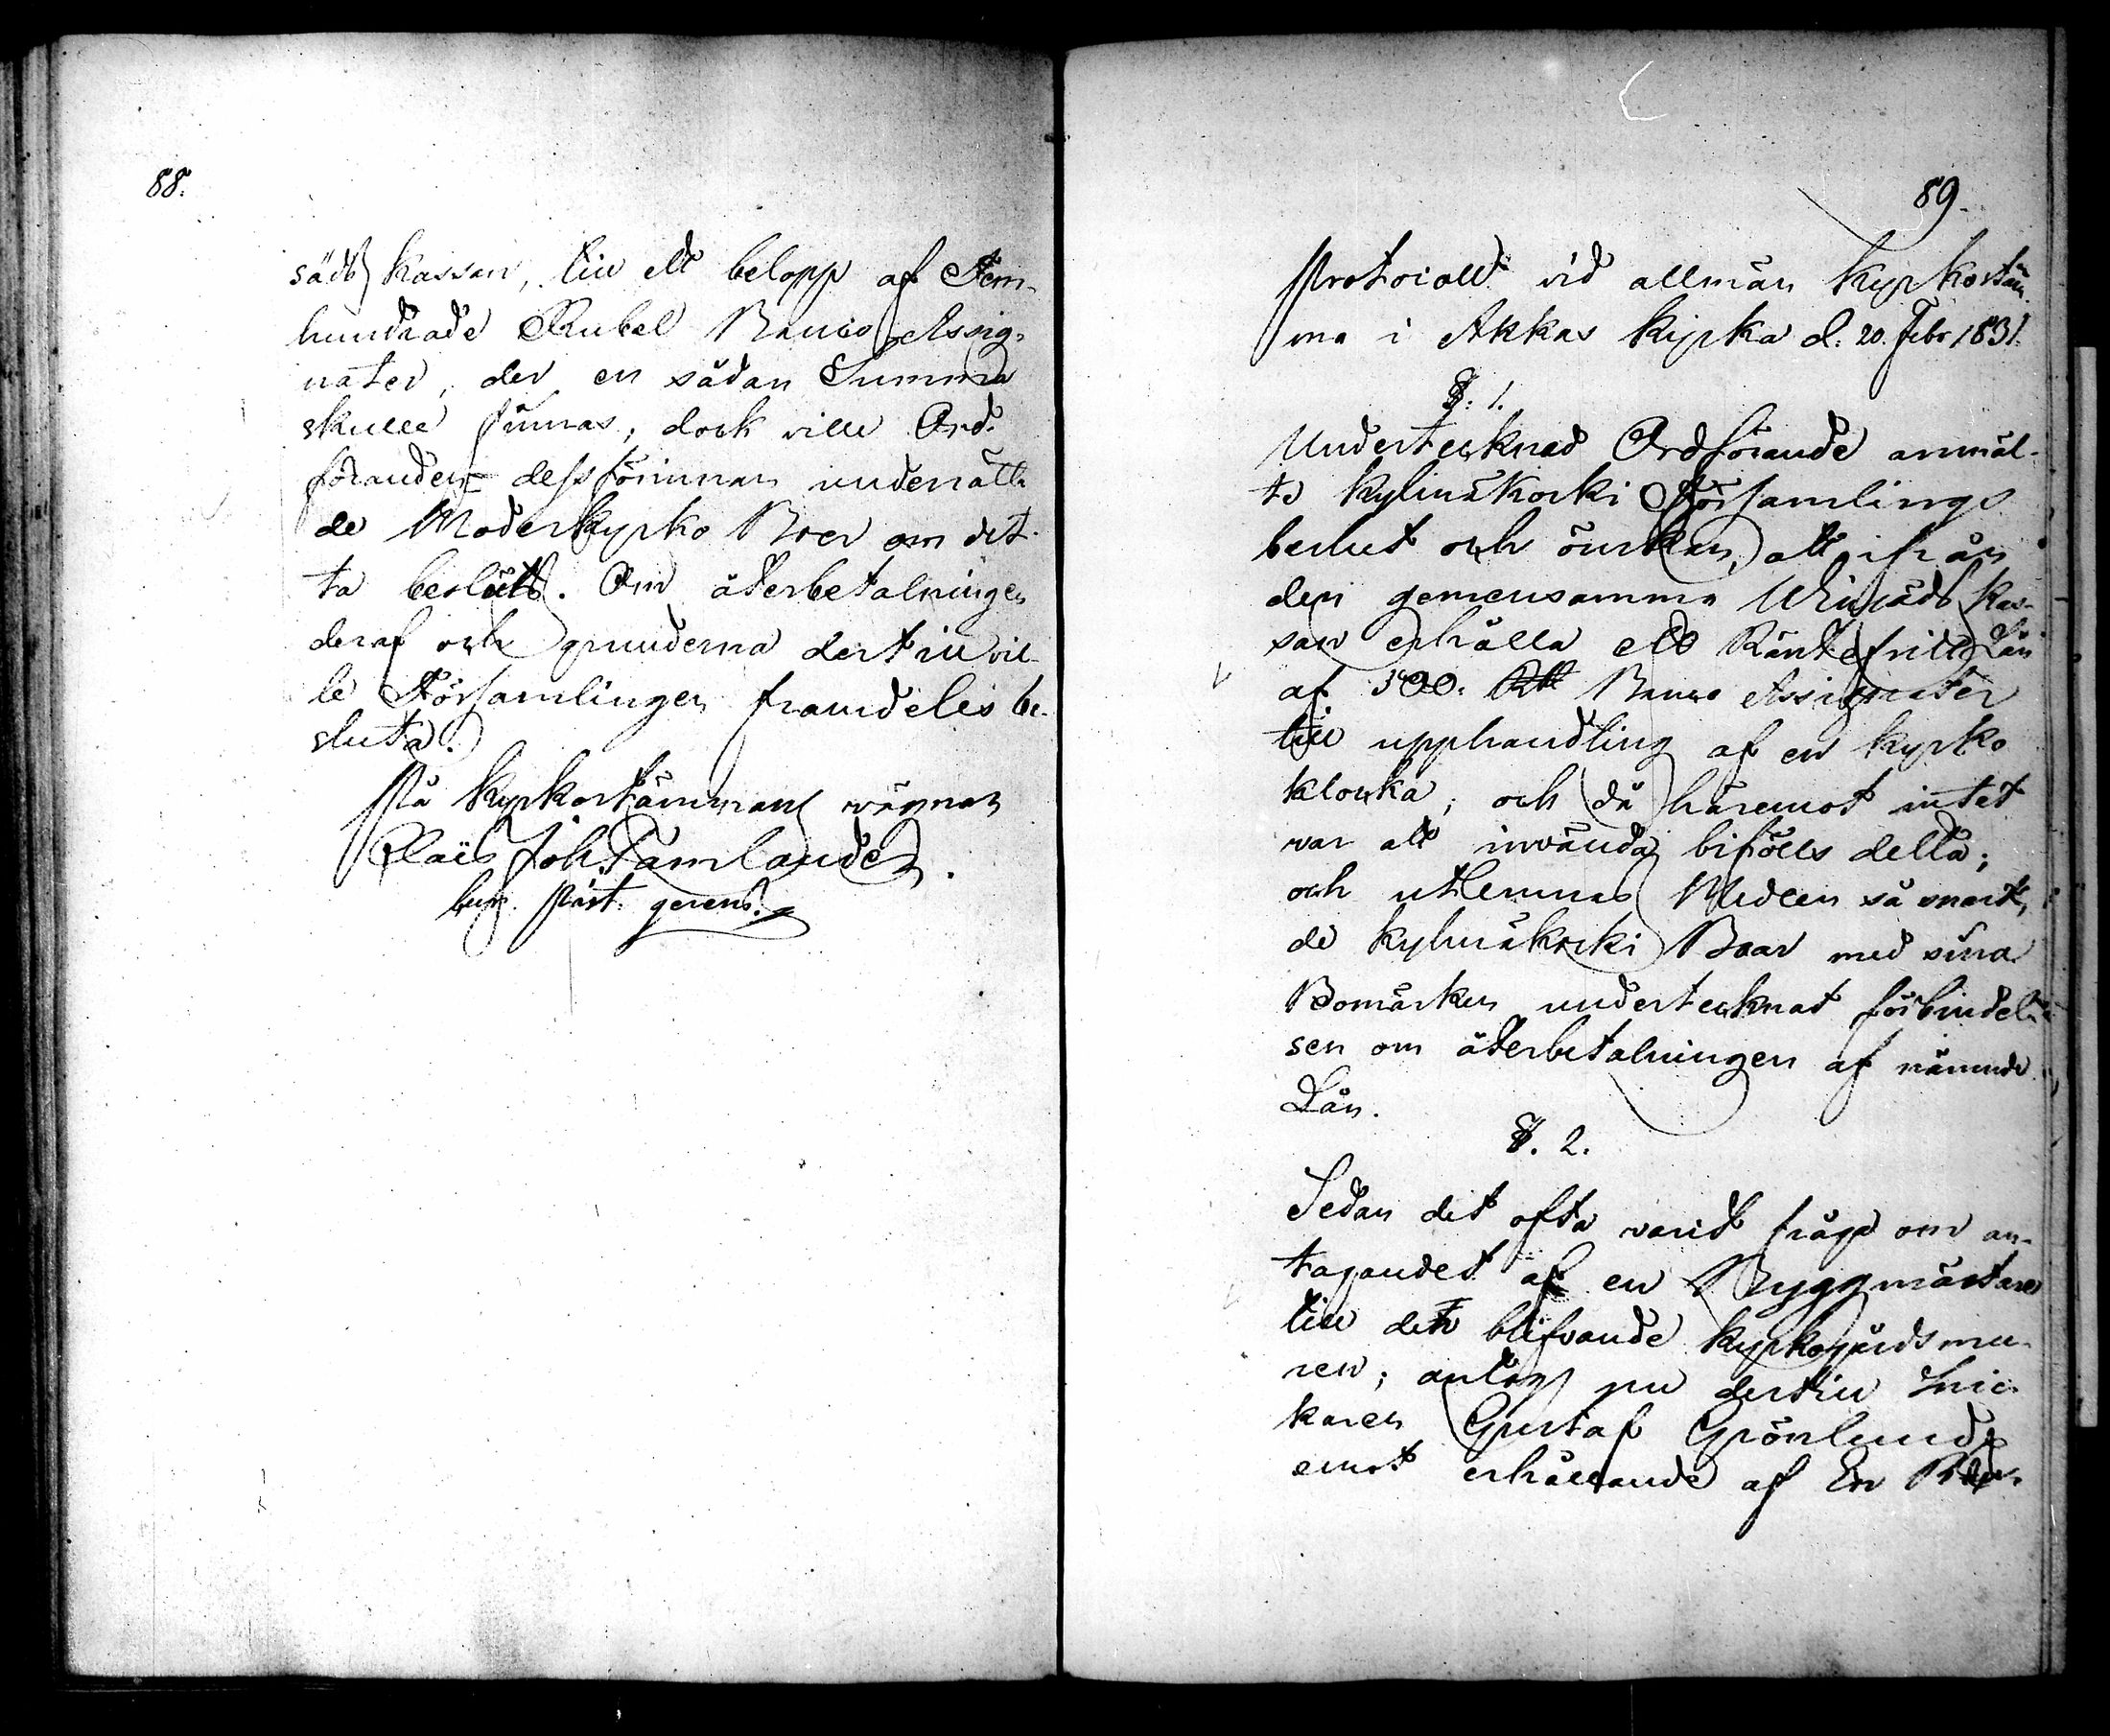 88.
säds Kassan, till ett belopp af Fem-
hundrade Rubel Banco Assig-
nater, der en sådan Summa
skulle finnas; dock ville Ord-
föranden dessförinnan underrätta
de Moderkyrko Boer om det-
ta besluts. Om återbetalningen
deraf och grunderna dertill vil-
le Församlingen framdeles be-
sluta.
På Kyrkostämmans vägnar
Claës Joh. Tamlander.
Past. gerens.
89.
Protocoll vid allmän Kyrkostäm-
ma i Akkas Kyrka d. 20. Febr 1831.
§. 1.
Undertecknad Ordförande anmäl-
te Kylmäkoski Församlings
beslut och önskan, att ifrån
den gemensamma Winsäds Kas-
san erhålla ett Räntefritt Lån
af 500. Banco Assignater
till upphandling af en Kyrko
klocka; och då häremot intet
var att invända bifölls detta;
och utlemnas Medlen så snart,
de Kylmäkoski Boar med sina
Bomärken undertecknat förbindel-
sen om återbetalningen af nämnde
Lån.
§. 2.
Sedan det ofta varit fråga om an-
tagandet af en Byggmästare
till den blifvande Kyrkogårdsmu-
ren; antogs nu dertill Snic-
karen Gustaf Grönlund,
emot erhållande af En